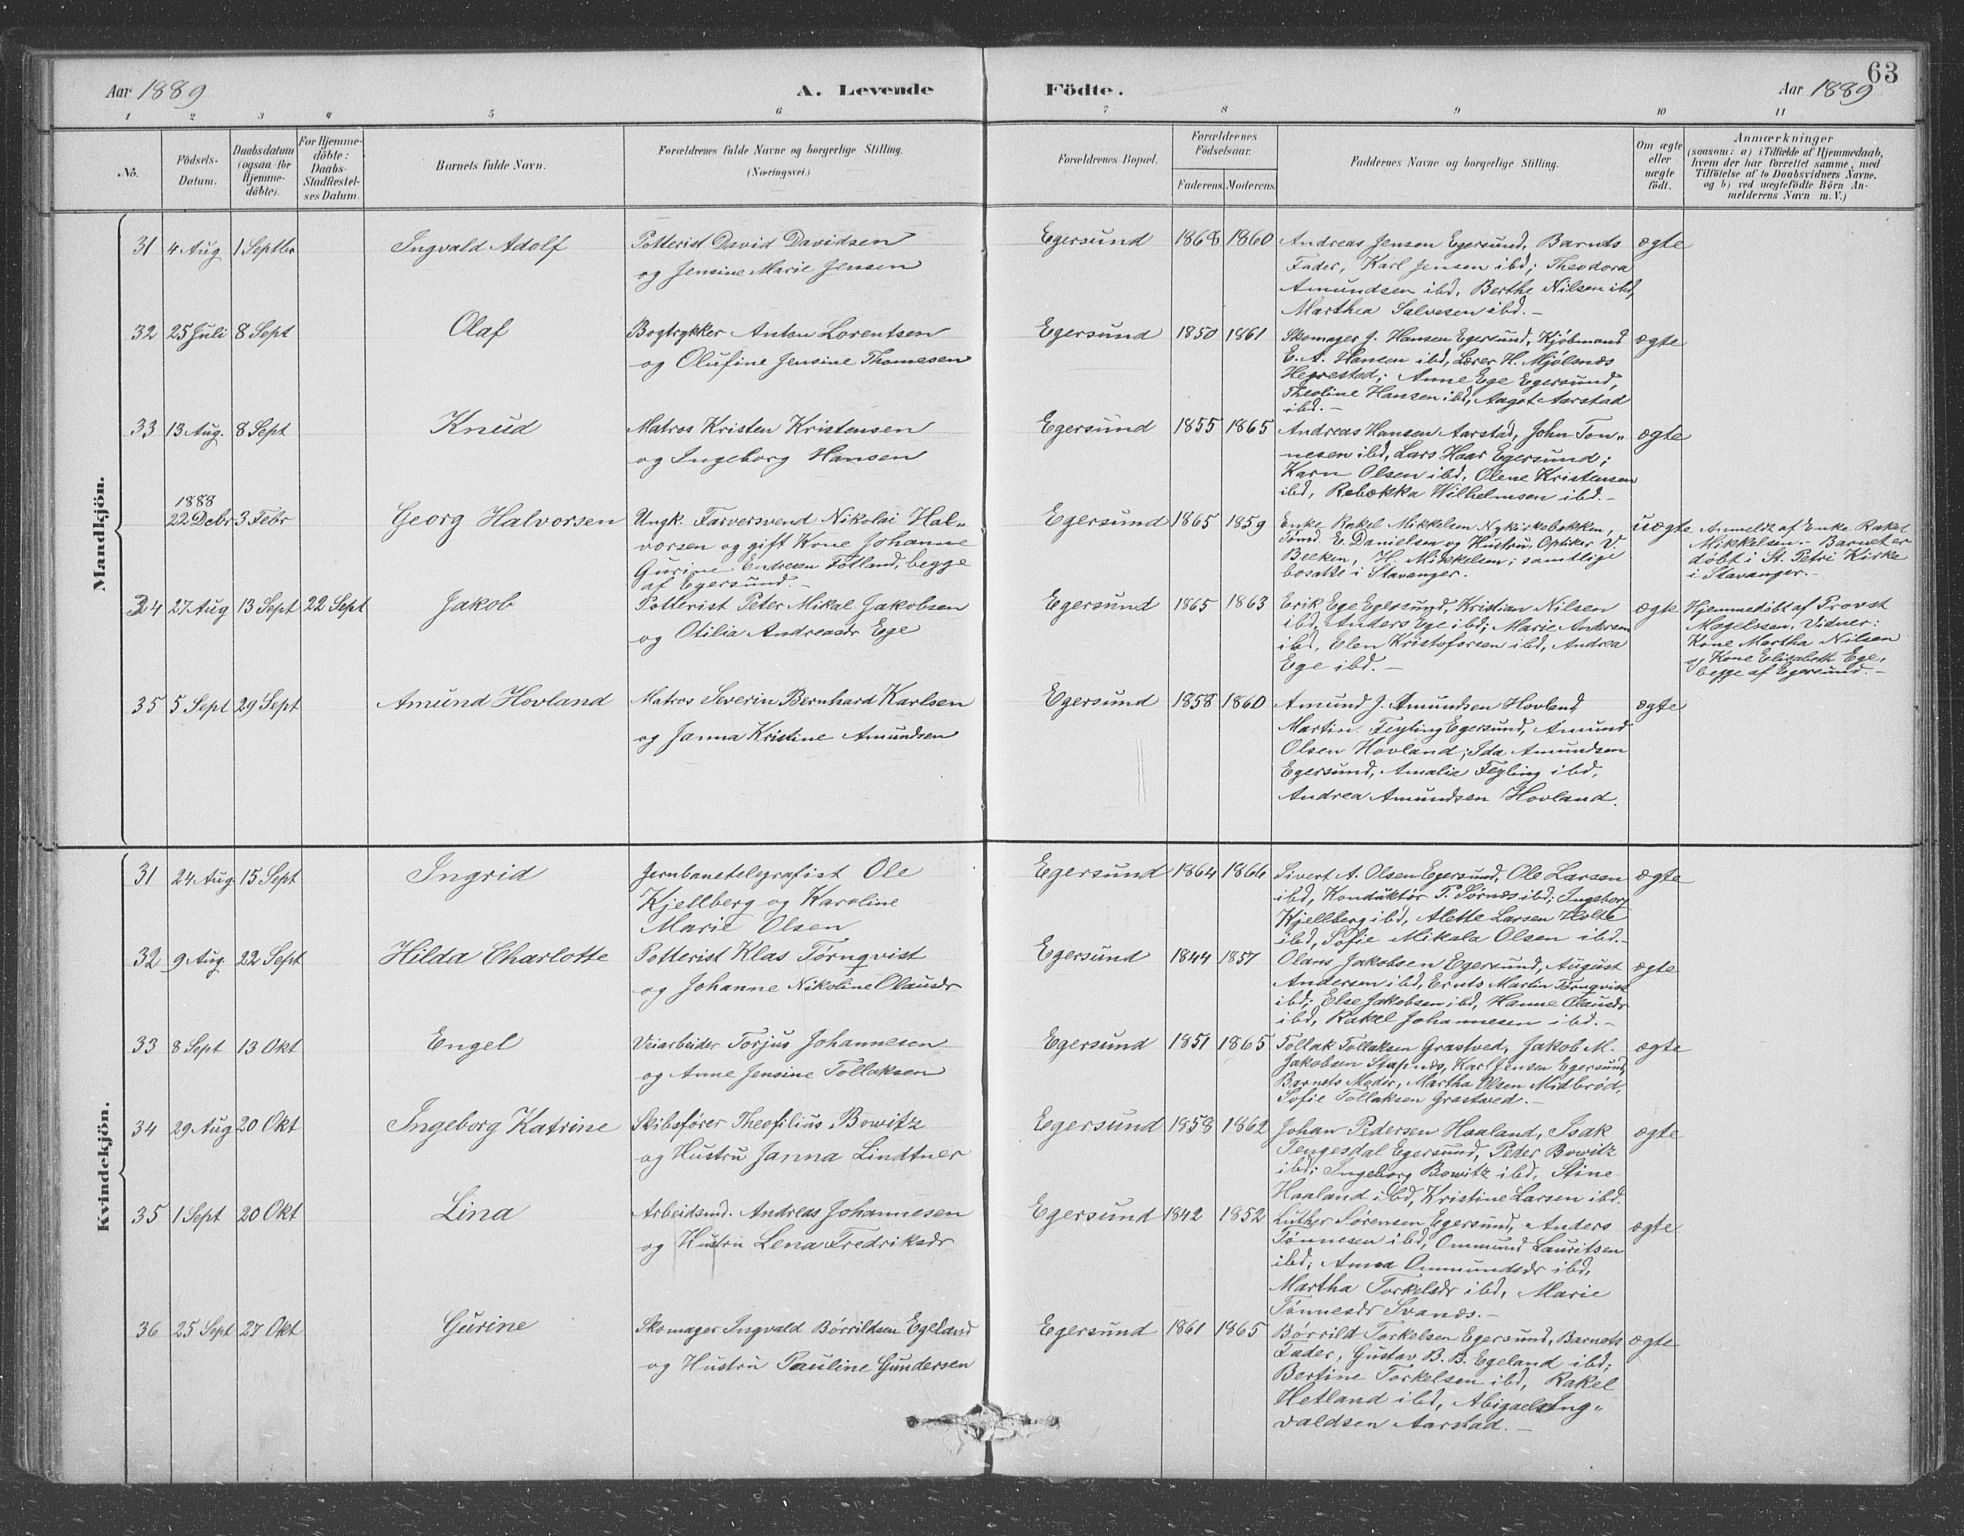 63
Aar 1889
A. Levende
Födte.
Aar 1889
1 2 3 4 5 6 7 8 9 10 11
No.
Födsels-
Datum.
Daabsdatum
(ogsaa for
Hjemme-
döbte).
For Hjemme-
döbte:
Daabs-
Stadfæstel-
ses Datum.
Barnets fulde Navn.
Forældrenes fulde Navne og borgerlige Stilling.
(Næringsvei.)
Forældrenes Bopæl.
Forældrenes
Födselsaar.
Faderens. Moderens.
Faddernes Navne og borgerlige Stilling.
Om ægte
eller
uægte
födt.
Anmærkninger
(saasom: a) i Tilfælde af Hjemmedaab,
hvem der har forrettet samme, med
Tilföielse af to Daabsvidners Navne,
og b) ved uægtefödte Börn An-
melderens Navn m. V.)
Mandkjön.
31 4 Aug 1 Septbr Ingvald Adolf
Potterist David Davidsen
og Jensine Marie Jensen
Egersund 1868 1860
Andreas Jensen Egersund, Barnets
Fader, Karl Jensen ibd; Theodora
Amundsen ibd, Berthe Nilsen ibd,
Marthea Salvesen ibd.-
ægte
32 25 Juli 8 Sept Olaf
Bogtrykker Anton Lorentsen
og Olufine Jensine Thomesen
Egersund 1850 1861
Skomager J. Hansen Egersund, Kjøbmand
E. A. Hansen ibd, Lærer H. Mjølsnæs
Hegrestad; Anne Ege Egersund,
Theoline Hansen ibd, Aagot Aarstad
ibd.-
ægte
33 13 Aug. 8 Sept Knud
Matros Kristen Kristensen
og Ingeborg Hansen
Egersund 1855 1865
Andreas Hansen Aarstad, John Tøn„
nesen ibd, Lars Haar Egersund;
Karn Olsen ibd, Olene Kristensen
ibd, Rebekka Wilhelmsen ibd.-
ægte
1888
22 Debr 3 Febr Georg Halvorsen
Ungk. Farversvend Nikolai Hal„
vorsen og gift Kone Johanne
Gurine Endresen Fotland, begge
af Egersund.-
Egersund 1865 1859
Enke Rakel Mikkelsen Nykirkebakken,
Tømd E. Danielsen og Hustru, Optiker V
Beeken, H. Mikkelsen; samtlige
bosatte i Stavanger.
uægte
Anmeldt af Enke Rakel
Mikkelsen.- Barnet er
døbt i St. Petri Kirke
i Stavanger.-
34 27 Aug 13 Sept 22 Sept Jakob
Potterist Peter Mikal Jakobsen
og Otilia Andreasdr Ege
Egersund 1865 1863
Erik Ege Egersund, Kristian Nilsen
ibd, Anders Ege ibd; Marie Andersen
ibd, Elen Kristofersen ibd, Andrea
Ege ibd.-
ægte
Hjemmedøbt af Provst
Magelssen, Vidner:
Kone Martha Nilsen
og Kone Elisabeth Ege,
begge af Egersund.-
35 5 Sept 29 Sept Amund Hovland
Matros Severin Bernhard Karlsen
og Janna Kristine Amundsen
Egersund 1858 1860
Amund J. Amundsen Hovland
Martin Feyling Egersund, Amund
Olsen Hovland; Ida Amundsen
Egersund, Amalie Feyling ibd,
Andrea Amundsen Hovland.
ægte
Kvindekjön.
31 24 Aug 15 Sept Ingrid
Jernbanetelegrafist Ole
Kjellberg og Karoline
Marie Olsen
Egersund 1864 1866
Sivert A. Olsen Egersund, Ole Larsen
ibd, Konduktør P. Sørnæs ibd; Ingeborg
Kjellberg ibd, Alette Larsen Holte
ibd, Sofie Mikala Olsen ibd.-
ægte
32 9 Aug 22 Sept Hilda Charlotte
Potterist Klas Tørnqvist
og Johanne Nikoline Olausdr
Egersund 1844 1857
Olaus Jakobsen Egersund, August
Andersen ibd, Ernts Martin Tørnqvist
ibd; Else Jakobsen ibd, Hanne Olausdr
ibd, Rakel Johannesen ibd.-
ægte
33 8 Sept 13 Okt Engel
Veiarbeider Torjus Johannesen
og Anne Jensine Tollaksen
Egersund 1851 1865
Tollak Tollaksen Grastved, Jakob M.
Jakobsen Stapnæs, Karl Jensen Egersund,
Barnets Moder, Martha Olsen Midbrød,
Sofie Tollaksen Grastved.-
ægte
34 29 Aug 20 Okt Ingeborg Katrine
Skibsfører Theofilius Bowitz
og Hustru Janna Lindtner
Egersund 1858 1862
Johan Pedersen Haaland, Isak
Tengesdal Egersund, Peder Bowitz
ibd; Ingeborg Bowitz ibd, Stine
Haaland ibd, Kristine Larsen ibd.
ægte
35 1 Sept 20 Okt Lina
Arbeidsmd. Andreas Johannesen
og Hustru Lena Fredriksdr
Egersund 1842 1852
Luther Sørensen Egersund, Anders
Tønnesen ibd, Ommund Lauritsen
ibd; Anna Ommundsdr ibd,
Martha Torkelsdr ibd, Marie
Tønnesdr Svanæs.-
ægte
36 25 Sept 27 Okt Gurine
Skomager Ingvald Børrildsen Egeland
og Hustru Pauline Gundersen
Egersund 1861 1865
Børrild Torkelsen Egersund, Barnets
Fader, Gustav B. B. Egeland ibd;
Bertine Torkelsen ibd, Rakel
Hetland ibd, Abigael Ing„
valdsen Aarstad.-
ægte